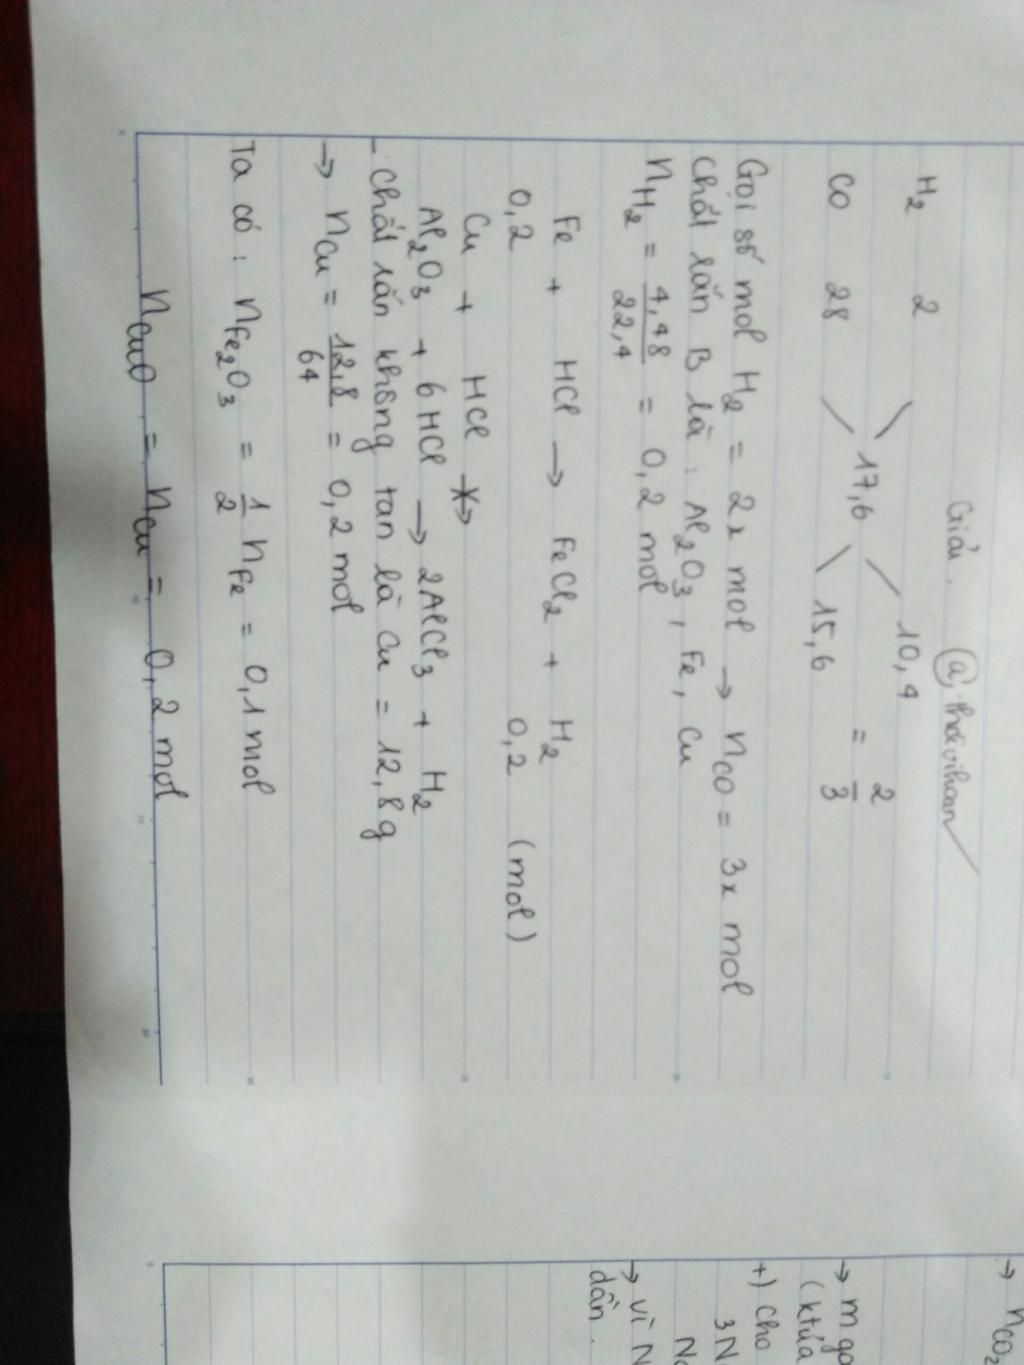 Giải. (a, thoivihoan
H2 2 10,4
17,6 = 2/3
CO 28 15,6
Gọi số mol H2 = 2x mol → nCO = 3x mol
Chất rắn B là : Al2O3, Fe, Cu
nH2 = 4,48/22,4 = 0,2 mol
Fe + HCl → FeCl2 + H2
0,2 0,2 (mol)
Cu + HCl
Al2O3 + 6HCl → 2AlCl3 + H2
- Chất rắn không tan là Cu = 12,8g
→ nCu = 12,8/64 = 0,2 mol
Ta có : nFe2O3 = 1/2 nFe = 0,1 mol
nCuO = nCu = 0,2 mol
→ nCO2
→ m
(ktủa
+) Cho
3N
→ vì N
dần.